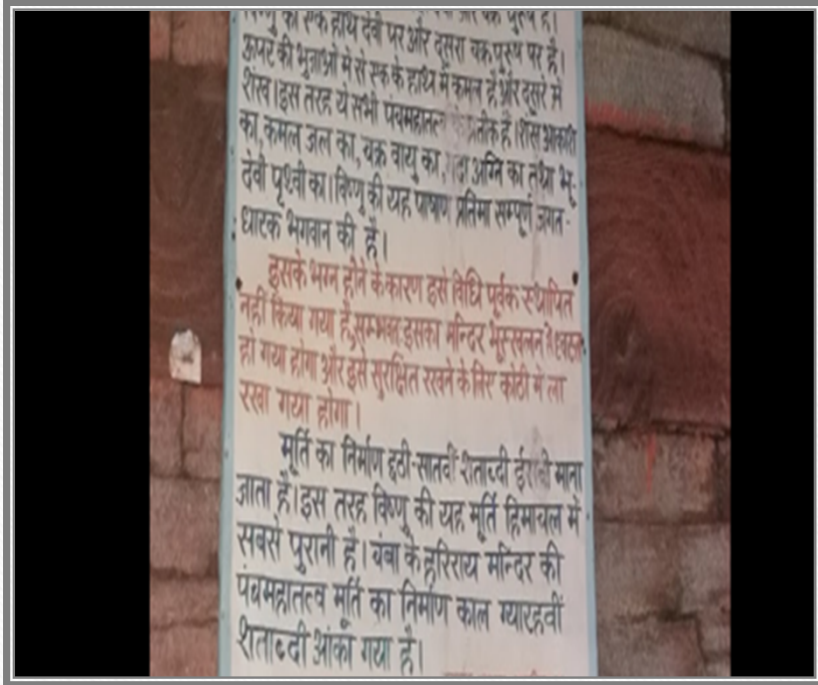 विष्णु का एक हाथ देवी पर और दूसरा चक्रपुरुष पर है।
ऊपर की भुजाओं में से एक के हाथ में कमल है और दूसरे में
शंख। इस तरह ये सभी पंचमहातत्व के प्रतीक हैं। शंख आकाश
का, कमल जल का, चक्र वायु का, गदा अग्नि का तथा भू-
देवी पृथ्वी का। विष्णु की यह पाषाण प्रतिमा सम्पूर्ण जगत-
धारक भगवान की है।
इसके भग्न होने के कारण इसे विधि पूर्वक स्थापित
नहीं किया गया है, सम्भवतः इसका मन्दिर भूस्खलन से
हो गया होगा और इसे सुरक्षित रखने के लिए कोठी में ला
रखा गया होगा।
मूर्ति का निर्माण छठी-सातवीं शताब्दी ईसवी माना
जाता है। इस तरह विष्णु की यह मूर्ति हिमाचल में
सबसे पुरानी है। चंबा के हरिराय मन्दिर की
पंचमहातत्व मूर्ति का निर्माण काल ग्यारहवीं
शताब्दी आंका गया है।